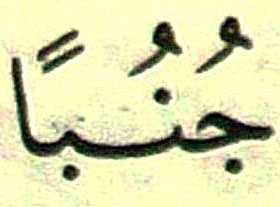 جُنُبًا